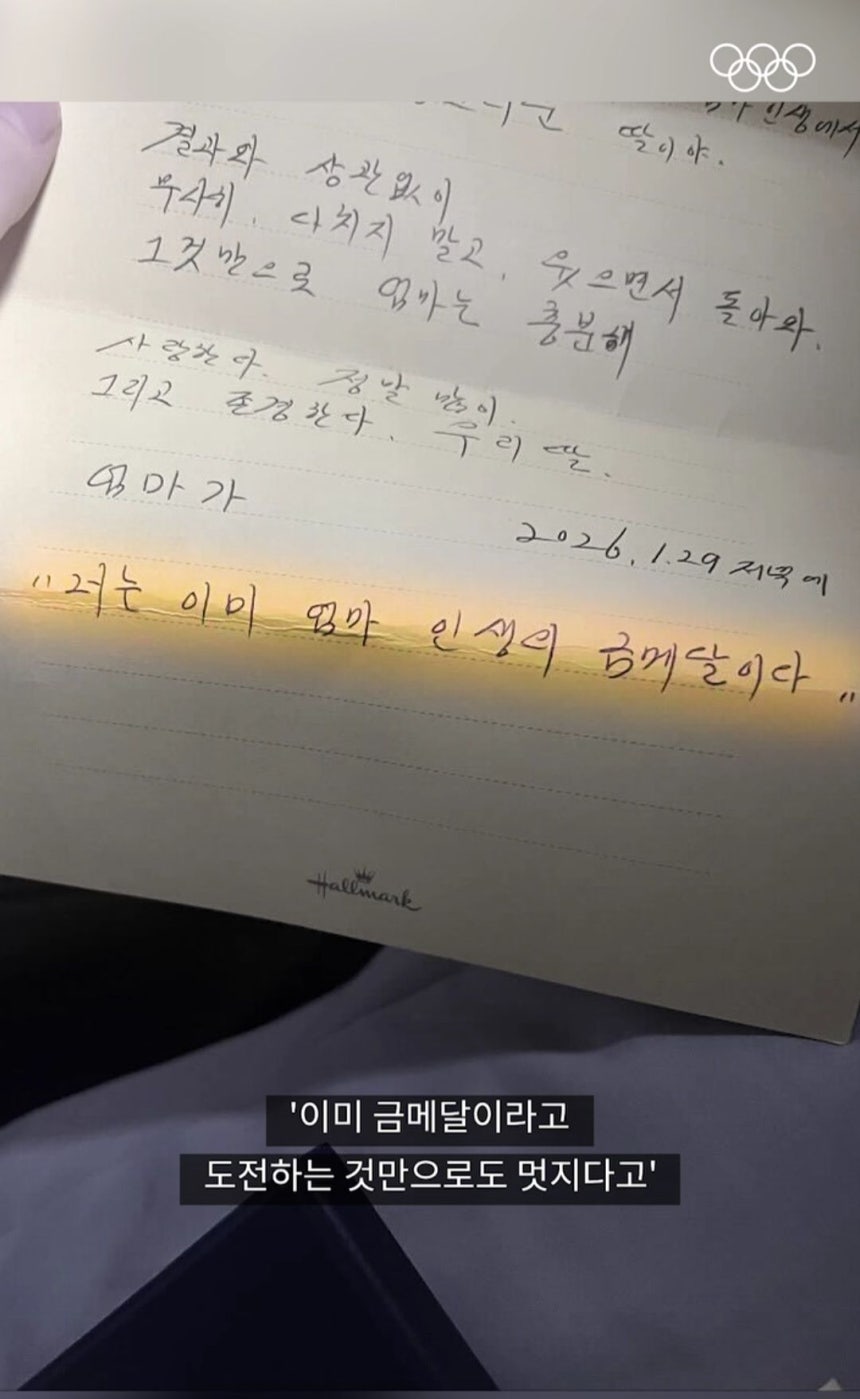 인생에서
딸이야.
결과와 상관없이
무사히, 다치지 말고, 웃으면서 돌아와.
그것만으로 엄마는 충분해
사랑한다. 정말 많이.
그리고 존경한다. 우리 딸.
엄마가
2026. 1. 29 저녁에
"너는 이미 엄마 인생의 금메달이다"
Hallmark
'이미 금메달이라고
도전하는 것만으로도 멋지다고'